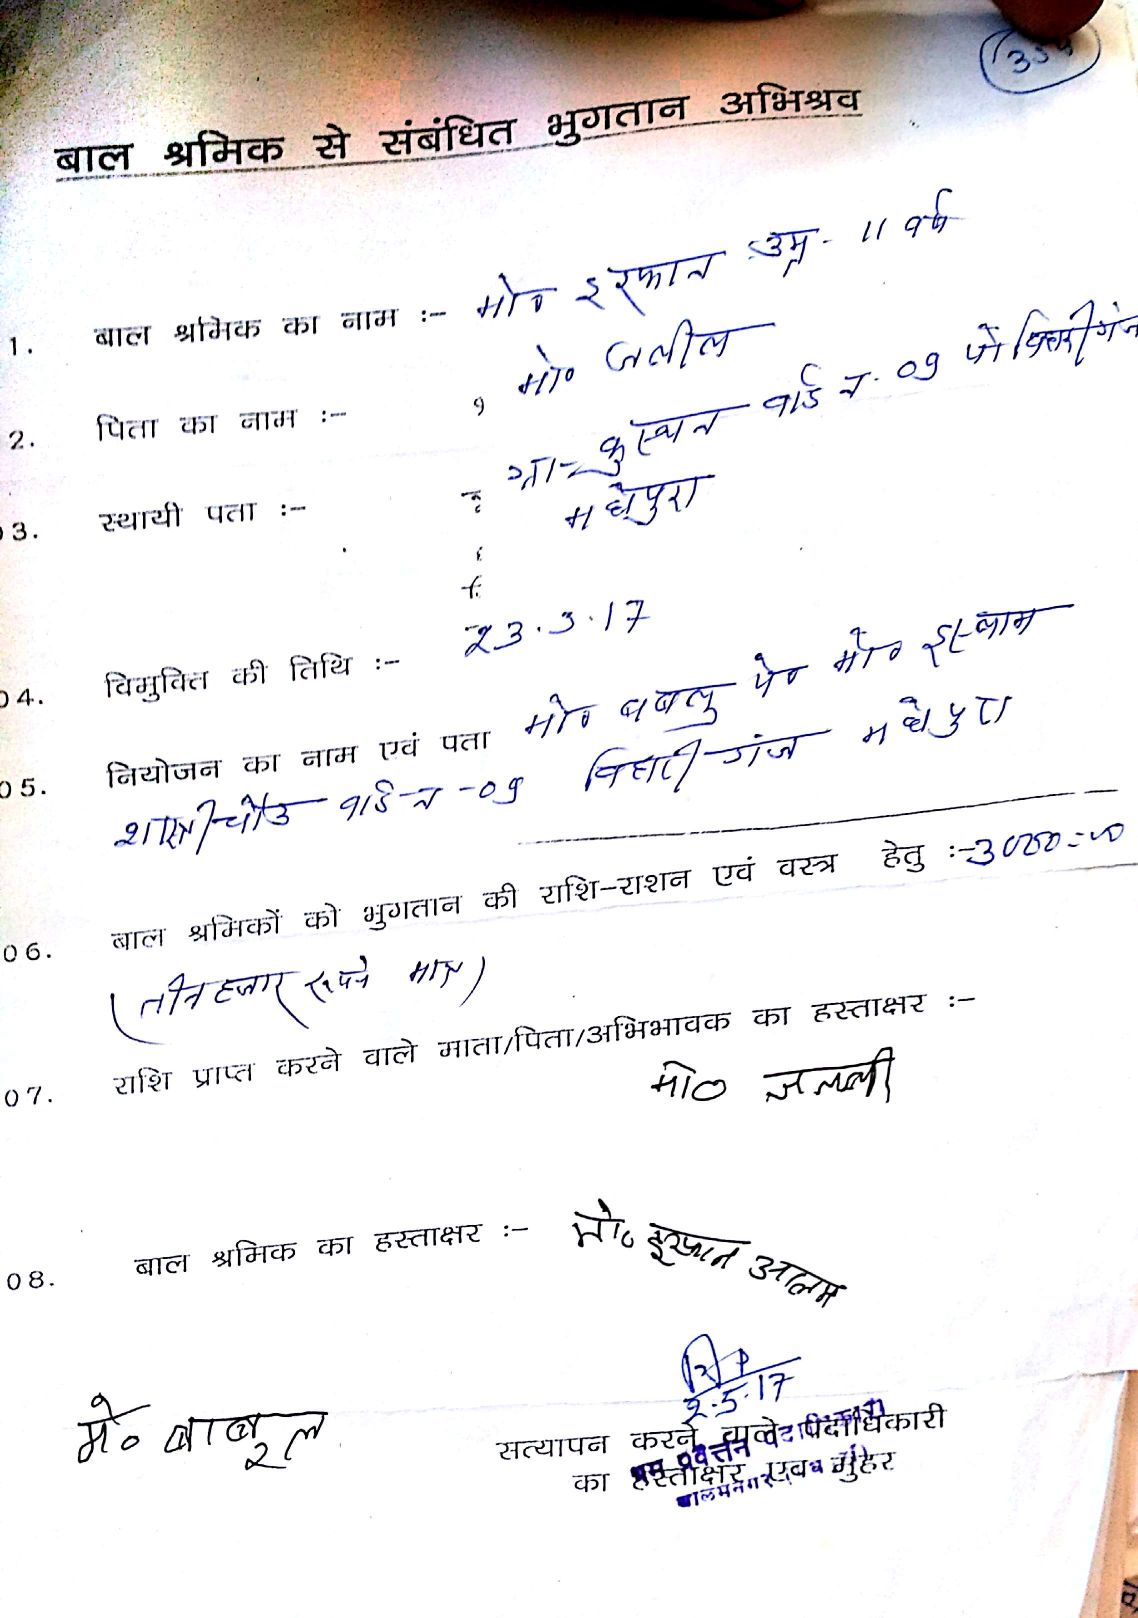 बाल श्रमिक से संबंधित भुगतान अभिश्रव
1. बाल श्रमिक का नाम :- मो० इरफान उम्र - 11 वर्ष
2. पिता का नाम :- मो० जलील
03. स्थायी पता :- कुस्थन वार्ड न. 09
मधेपुरा
04. विमुक्ति की तिथि :- 23.3.17
05. नियोजन का नाम एवं पता मो० बबलु पे० मो० इस्लाम
शास्त्री चौक वार्ड न -09 बिहारीगंज मधेपुरा
06. बाल श्रमिकों को भुगतान की राशि-राशन एवं वस्त्र हेतु :- 3000=00
(तीन हजार रूपये मात्र)
07. राशि प्राप्त करने वाले माता/पिता/अभिभावक का हस्ताक्षर :-
मो० जलली
08. बाल श्रमिक का हस्ताक्षर :- मो० इरफान आलम
2.5.17
मे० बाबूल
सत्यापन करने वाले पदाधिकारी
का हस्ताक्षर एवं मुहर
श्रम प्रवर्त्तन पदाधिकारी